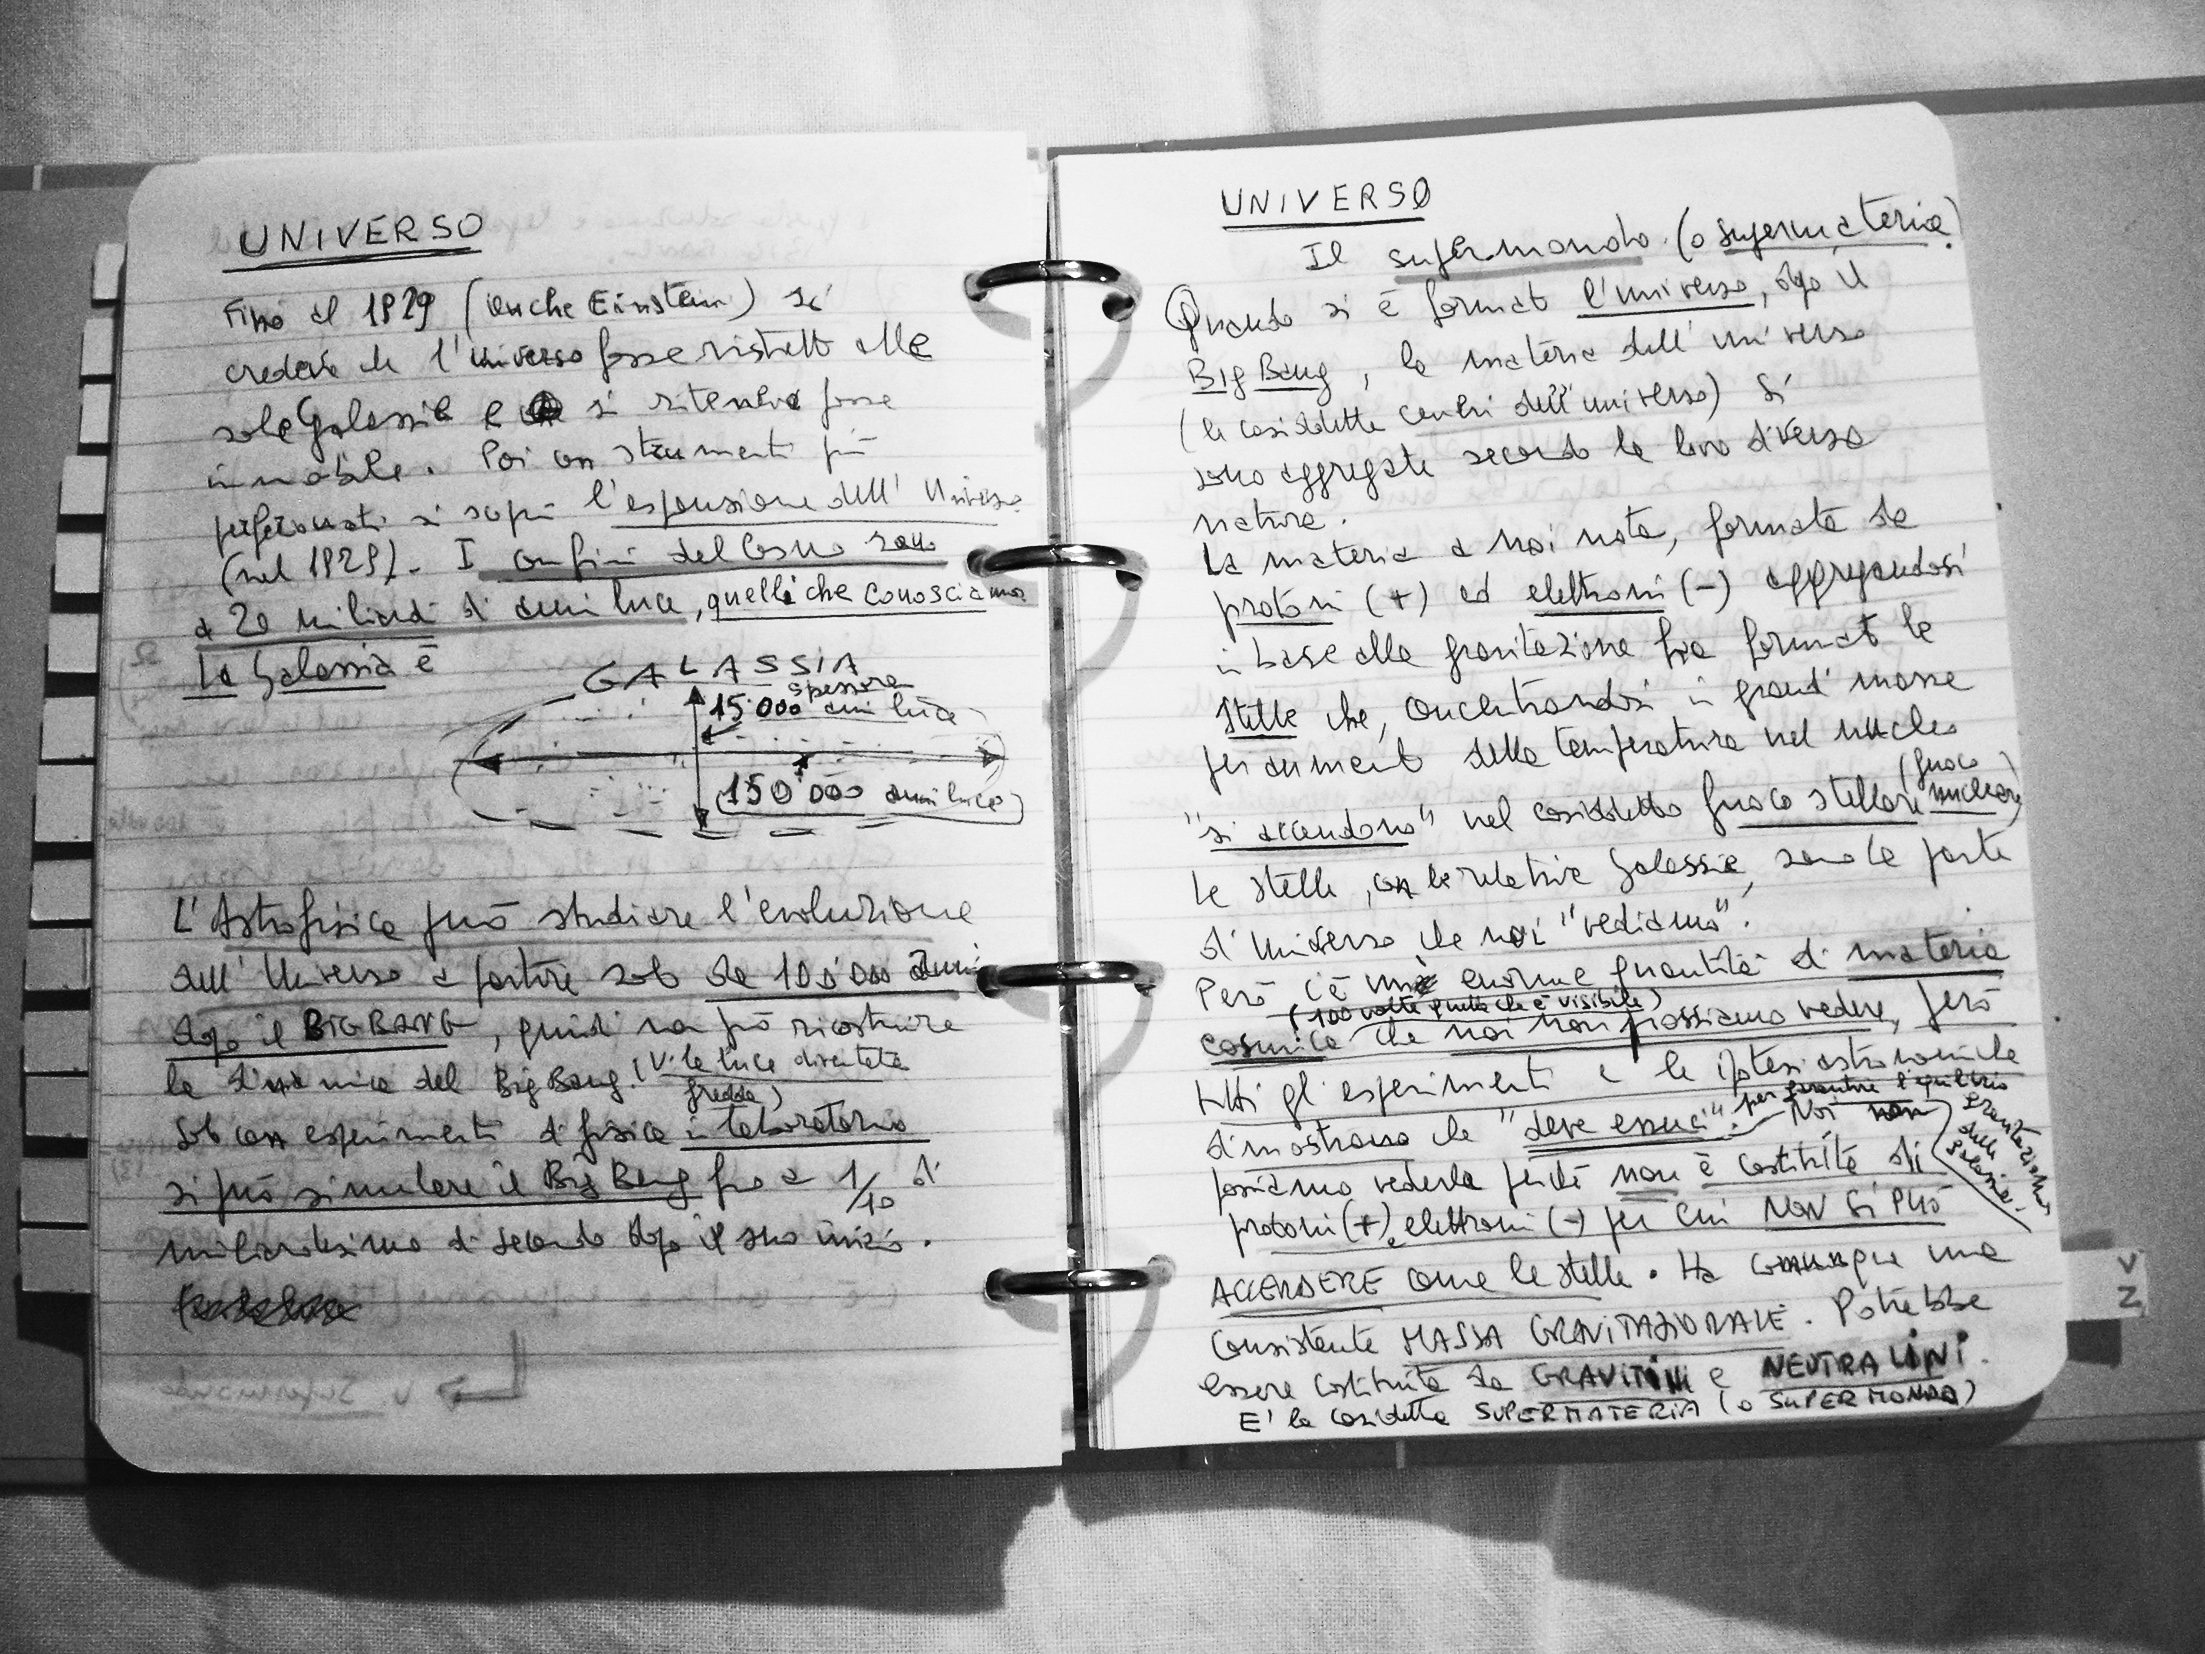 UNIVERSO
Fino al 1929 (anche Einstein) si
credeva che l'universo fosse ristretto alla
sola Galassia e si riteneva fosse
immobile. Poi con strumenti più
perfezionati si scoprì l'espansione dell'Universo
(nel 1929). I confini del Cosmo sono
a 20 miliardi di anni luce, quelli che conosciamo.
La Galassia è
GALASSIA
spessore
15'000 anni luce
(150'000 anni luce)
L'Astrofisica può studiare l'evoluzione
dell'Universo a partire solo da 100'000 anni
dopo il BIG BANG, quindi non può ricostruire
la dinamica del Big Bang. (V. la luce diventata
fredda)
Solo con esperimenti di fisica in laboratorio
si può simulare il Big Bang fino a 1/10 di
miliardesimo di secondo dopo il suo inizio.
UNIVERSO
Il supermondo (o supermateria)
Quando si è formato l'universo, dopo il
Big Bang, la materia dell'universo
(le cosiddette ceneri dell'universo) si
sono aggregate secondo la loro diversa
natura.
La materia a noi nota, formata da
protoni (+) ed elettroni (-) aggregandosi
in base alla gravitazione ha formato le
stelle che, concentrandosi in grandi masse
per aumento della temperatura nel nucleo
"si accendono" nel cosiddetto fuoco stellare (fuoco
nucleare)
Le stelle, con le relative Galassie, sono la parte
d'Universo che noi "vediamo".
Però c'è enorme quantità di materia
(100 volte quella che è visibile)
cosmica che noi non possiamo vedere, però
tutti gli esperimenti e le ipotesi astronomiche
dimostrano che "deve esserci". per garantire l'equilibrio
gravitazionale
delle
Galassie.
Noi non
possiamo vederla perché non è costituita di
protoni (+) e elettroni (-) per cui NON SI PUÒ
ACCENDERE come le stelle. Ha comunque una
consistente MASSA GRAVITAZIONALE. Potrebbe
essere costituita da GRAVITINI e NEUTRALINI.
E' la cosidetta SUPERMATERIA (o SUPERMONDO)
V
Z